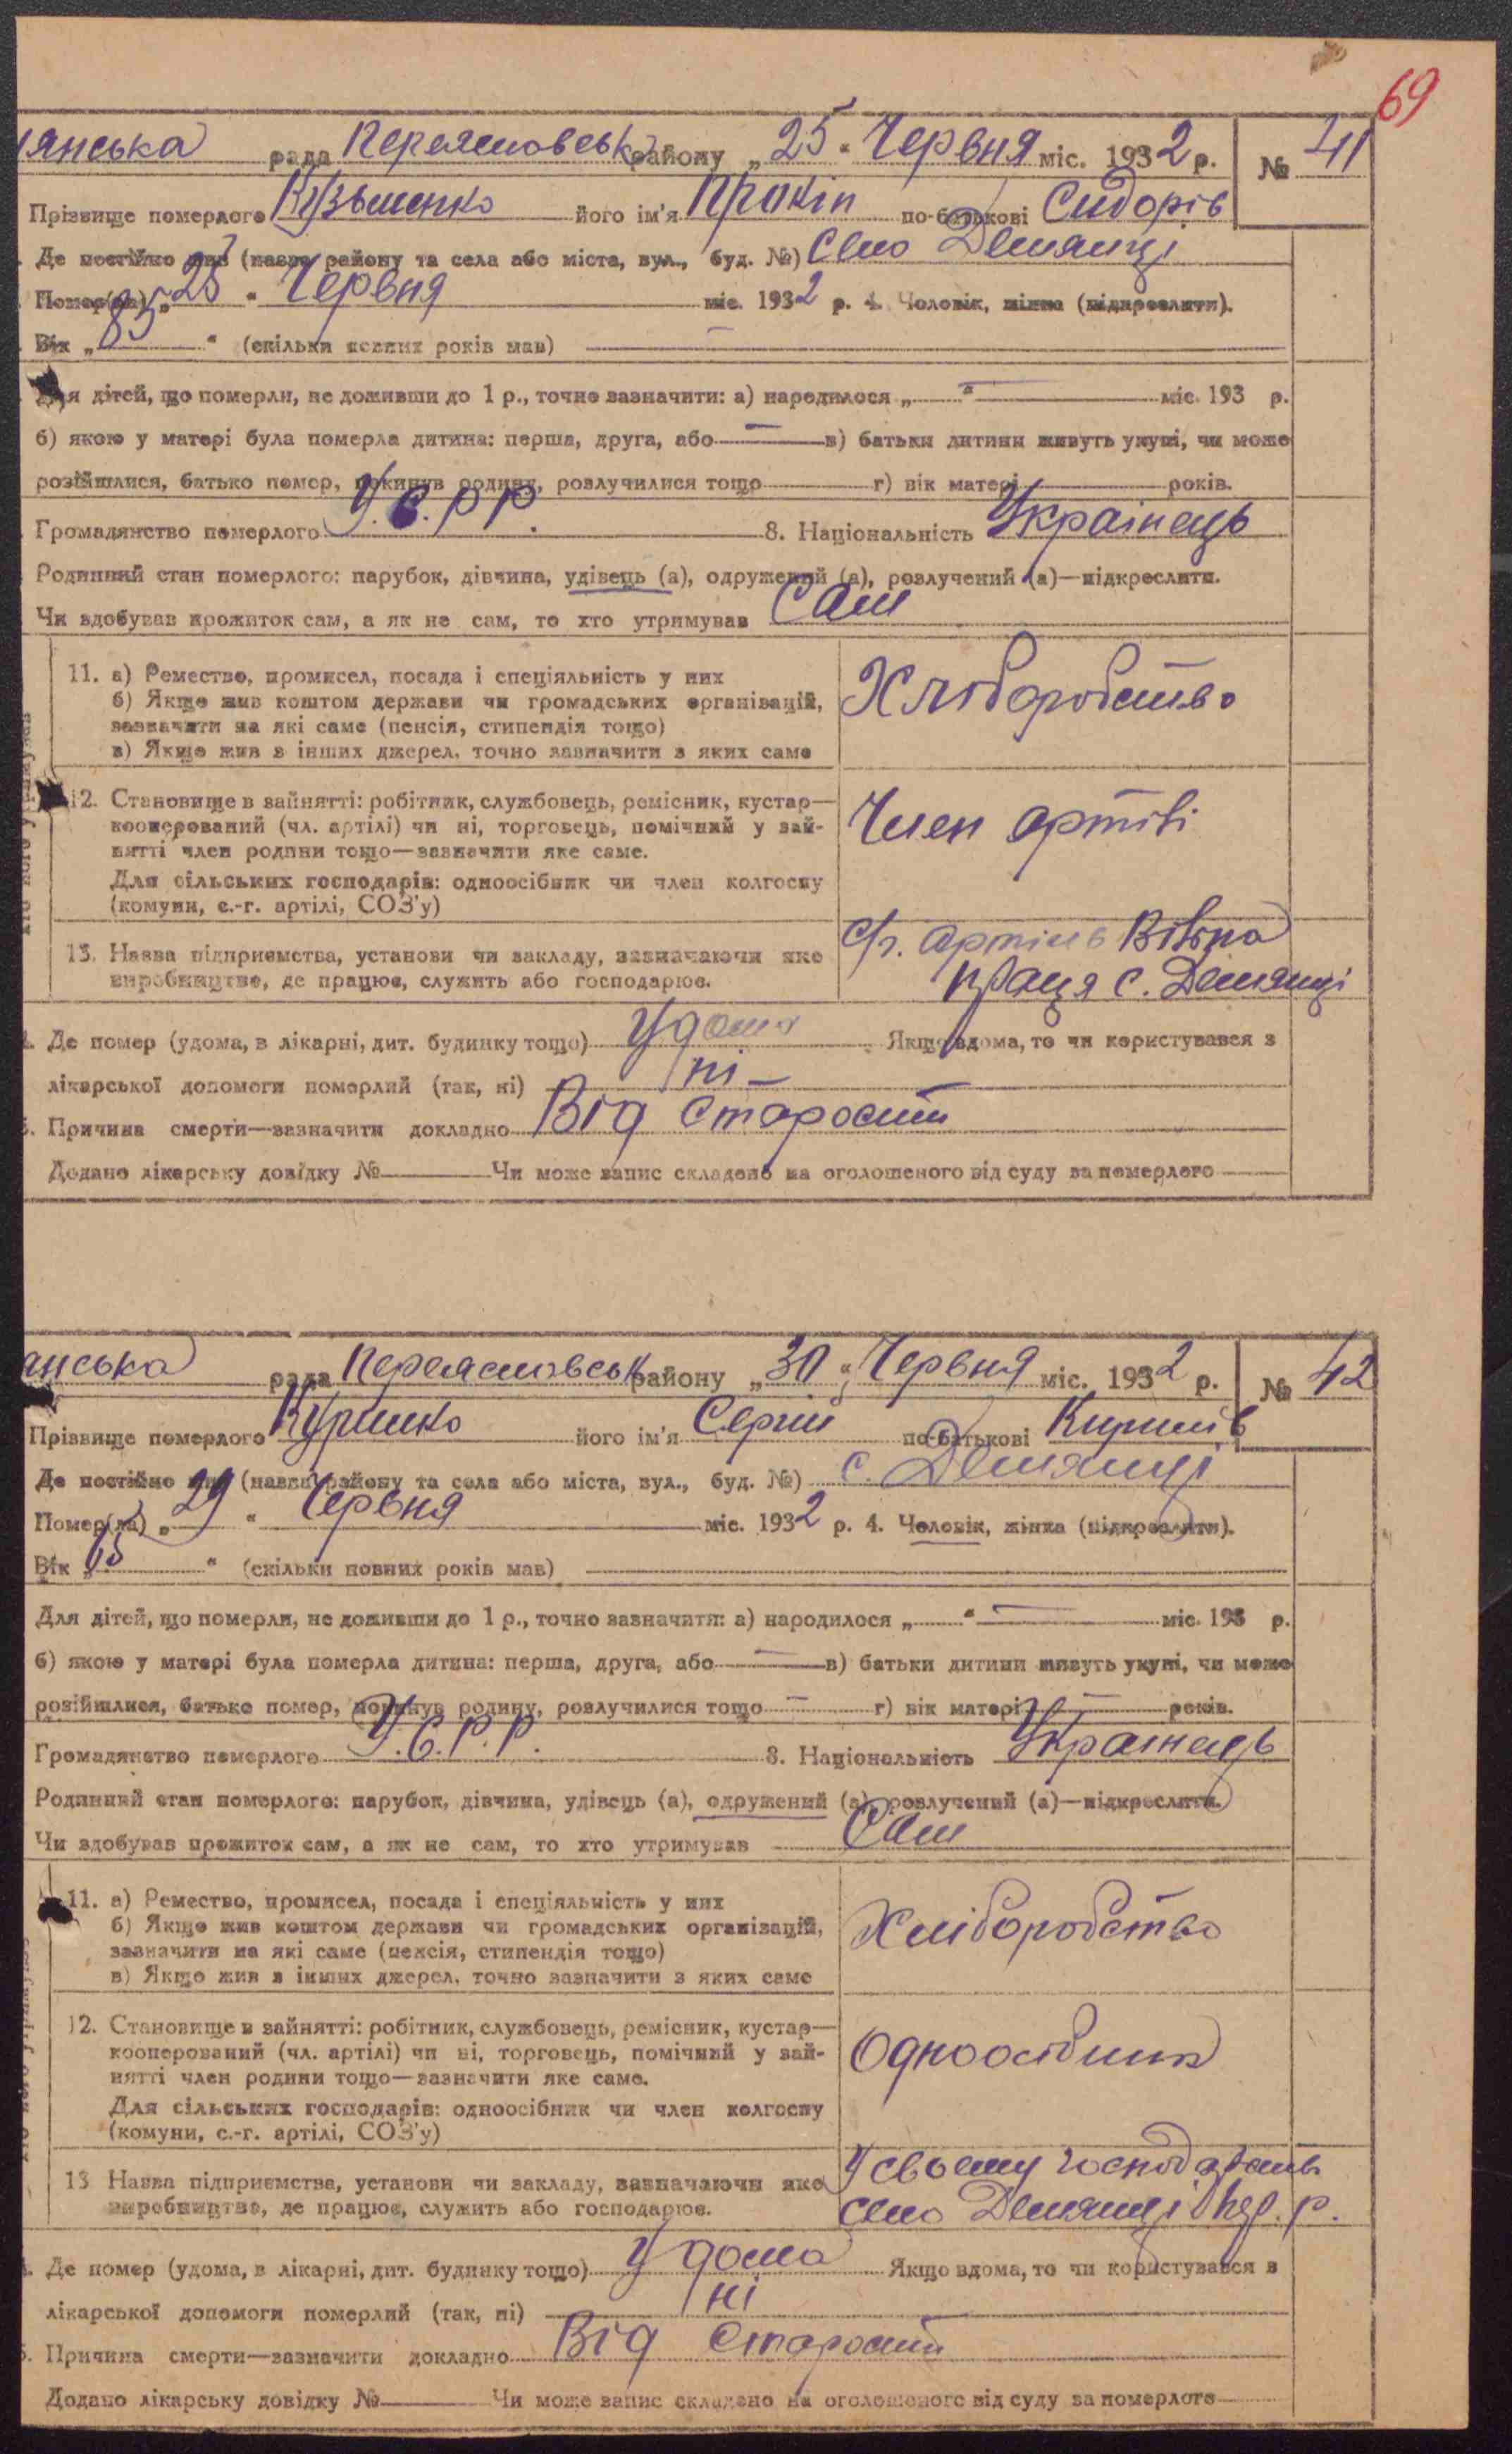 69
янська рада Переясловськ району „25“ Червня міс. 1932 р. № 41
Прізвище померлого Кузьменко його ім'я Прокіп по-батькові Сидорів
Де постійно жив (назва району та села або міста, вул., буд. №) Село Демянці
Помер(ла) „25“ Червня міс. 1932 р. 4. Чоловік, жінка (підкреслити).
Вік „85“ (скільки повних років мав) —
Для дітей, що померли, не доживши до 1 р., точно зазначити: а) народилося „ “ — міс. 193 р.
б) якою у матері була померла дитина: перша, друга, або — в) батьки дитини живуть укупі, чи може
розійшлися, батько помер, покинув родину, розлучилися тощо г) вік матері років.
Громадянство померлого У.С.Р.Р. 8. Національність Українець
Родинний стан померлого: парубок, дівчина, удівець (а), одружений (а), розлучений (а)—підкреслити.
Чи здобував прожиток сам, а як не сам, то хто утримував Сам
11. а) Ремество, промисел, посада і спеціяльність у них
б) Якщо жив коштом держави чи громадських організацій,
зазначити на які саме (пенсія, стипендія тощо)
в) Якщо жив з інших джерел, точно зазначити з яких саме
Хліборобство
12. Становище в зайнятті: робітник, службовець, ремісник, кустар—
кооперований (чл. артілі) чи ні, торговець, помічний у зай-
нятті член родини тощо—зазначити яке саме.
Для сільських господарів: одноосібник чи член колгоспу
(комуни, с.-г. артілі, СОЗ'у)
Член артілі
13. Назва підприємства, установи чи закладу, зазначаючи яке
виробництво, де працює, служить або господарює.
артіль Вільна
праця с. Демянці
Де помер (удома, в лікарні, дит. будинку тощо) Удома Якщо вдома, то чи користувався з
лікарської допомоги померлий (так, ні) ні —
Причина смерти—зазначити докладно Від старости
Додано лікарську довідку № Чи може запис складено на оголошеного від суду за померлого
анська рада Переясловськ району „30“ Червня міс. 1932 р. № 42
Прізвище померлого його ім'я Сергій по-батькові Кирилів
Де постійно жив (назва району та села або міста, вул., буд. №) с. Демянці
Помер(ла) „29“ Червня міс. 1932 р. 4. Чоловік, жінка (підкреслити).
Вік „ “ (скільки повних років мав)
Для дітей, що померли, не доживши до 1 р., точно зазначити: а) народилося „ “ — міс. 193 р.
б) якою у матері була померла дитина: перша, друга, або — в) батьки дитини живуть укупі, чи може
розійшлися, батько помер, покинув родину, розлучилися тощо — г) вік матері — років.
Громадянство померлого У.С.Р.Р. 8. Національність Українець
Родинний стан померлого: парубок, дівчина, удівець (а), одружений (а), розлучений (а)—підкреслити.
Чи здобував прожиток сам, а як не сам, то хто утримував Сам
11. а) Ремество, промисел, посада і спеціяльність у них
б) Якщо жив коштом держави чи громадських організацій,
зазначити на які саме (пенсія, стипендія тощо)
в) Якщо жив з інших джерел, точно зазначити з яких саме
Хліборобство
12. Становище в зайнятті: робітник, службовець, ремісник, кустар—
кооперований (чл. артілі) чи ні, торговець, помічний у зай-
нятті член родини тощо—зазначити яке саме.
Для сільських господарів: одноосібник чи член колгоспу
(комуни, с.-г. артілі, СОЗ'у)
Одноосібник
13 Назва підприємства, установи чи закладу, зазначаючи яке
виробництво, де працює, служить або господарює.
У своєму господарстві
село Демянці р.
Де помер (удома, в лікарні, дит. будинку тощо) Удома Якщо вдома, то чи користувався з
лікарської допомоги померлий (так, ні) ні
Причина смерти—зазначити докладно Від старости
Додано лікарську довідку № Чи може запис складено на оголошеного від суду за померлого